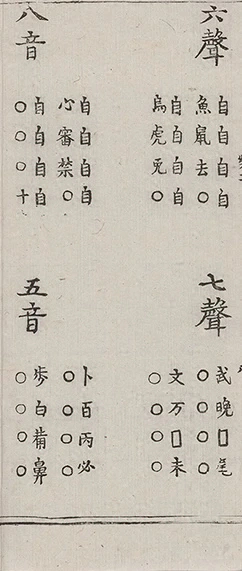 六聲
自自自自
魚鼠去○
自自自自
烏虎兎○
八音
自自自自
心審禁○
自自自自
○○○十
七聲
武晚□尾
○○○○
文万□未
○○○○
五音
卜百丙必
○○○○
步白鼻
○○○○